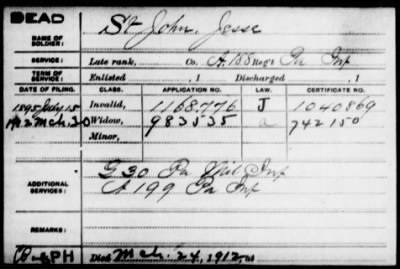 DEAD
NAME OF SOLDIER: St John, Jesse
SERVICE: Late rank, Co. A. 188 Reg't Pa Inf
TERM OF SERVICE: Enlisted , 1 Discharged , 1
DATE OF FILING. CLASS. APPLICATION NO. LAW. CERTIFICATE NO.
1895 July 15 Invalid, 1168.776 J 1040869
Mch. 30 Widow, 983535 a 742150
Minor,
ADDITIONAL SERVICES: G 30 Pa Mil Inf
A 199 Pa Inf
REMARKS:
PH Died Mch. 24, 1912,